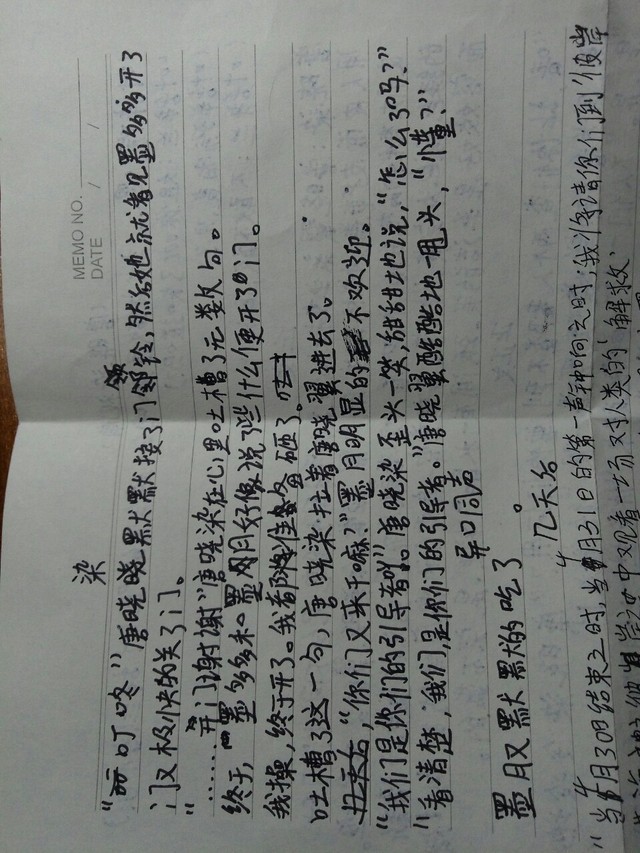 MEMO NO.
DATE / /
染
"叮咚"唐晓晓默默按了门铃,然后她就看见墨多多开了
门又极快的关了门。
"……开门谢谢"唐晓染在心里吐槽了无数句。
终于,墨多多和墨月好像说了些什么便开了门。
我操,终于开了。我都准备砸了。
吐槽了这一句,唐晓染拉着唐晓翼进去了。
"你们又来干嘛?"墨月明显的不欢迎。
"我们是你们的引导者哟。"唐晓染歪头一笑,甜甜地说,"怎么了吗?"
"看清楚,我们,是你们的引导者。"唐晓翼酷酷地甩头,"懂?"
异口同声
墨月又默默的吃了。
几天后
"当4月30日结束之时,当4月31日的第一声钟响完时;我将请你们到'彼岸
中观看一场对人类的'解救'